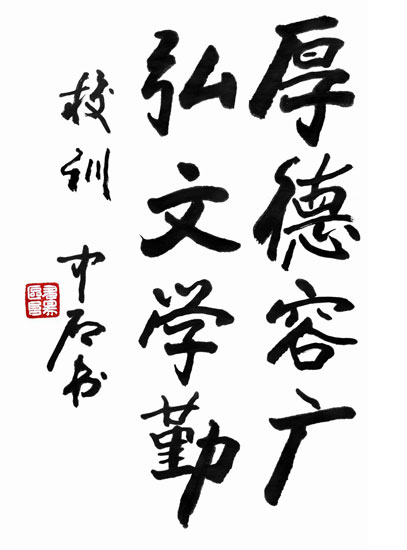 厚德容广
弘文学勤
校训
中石书